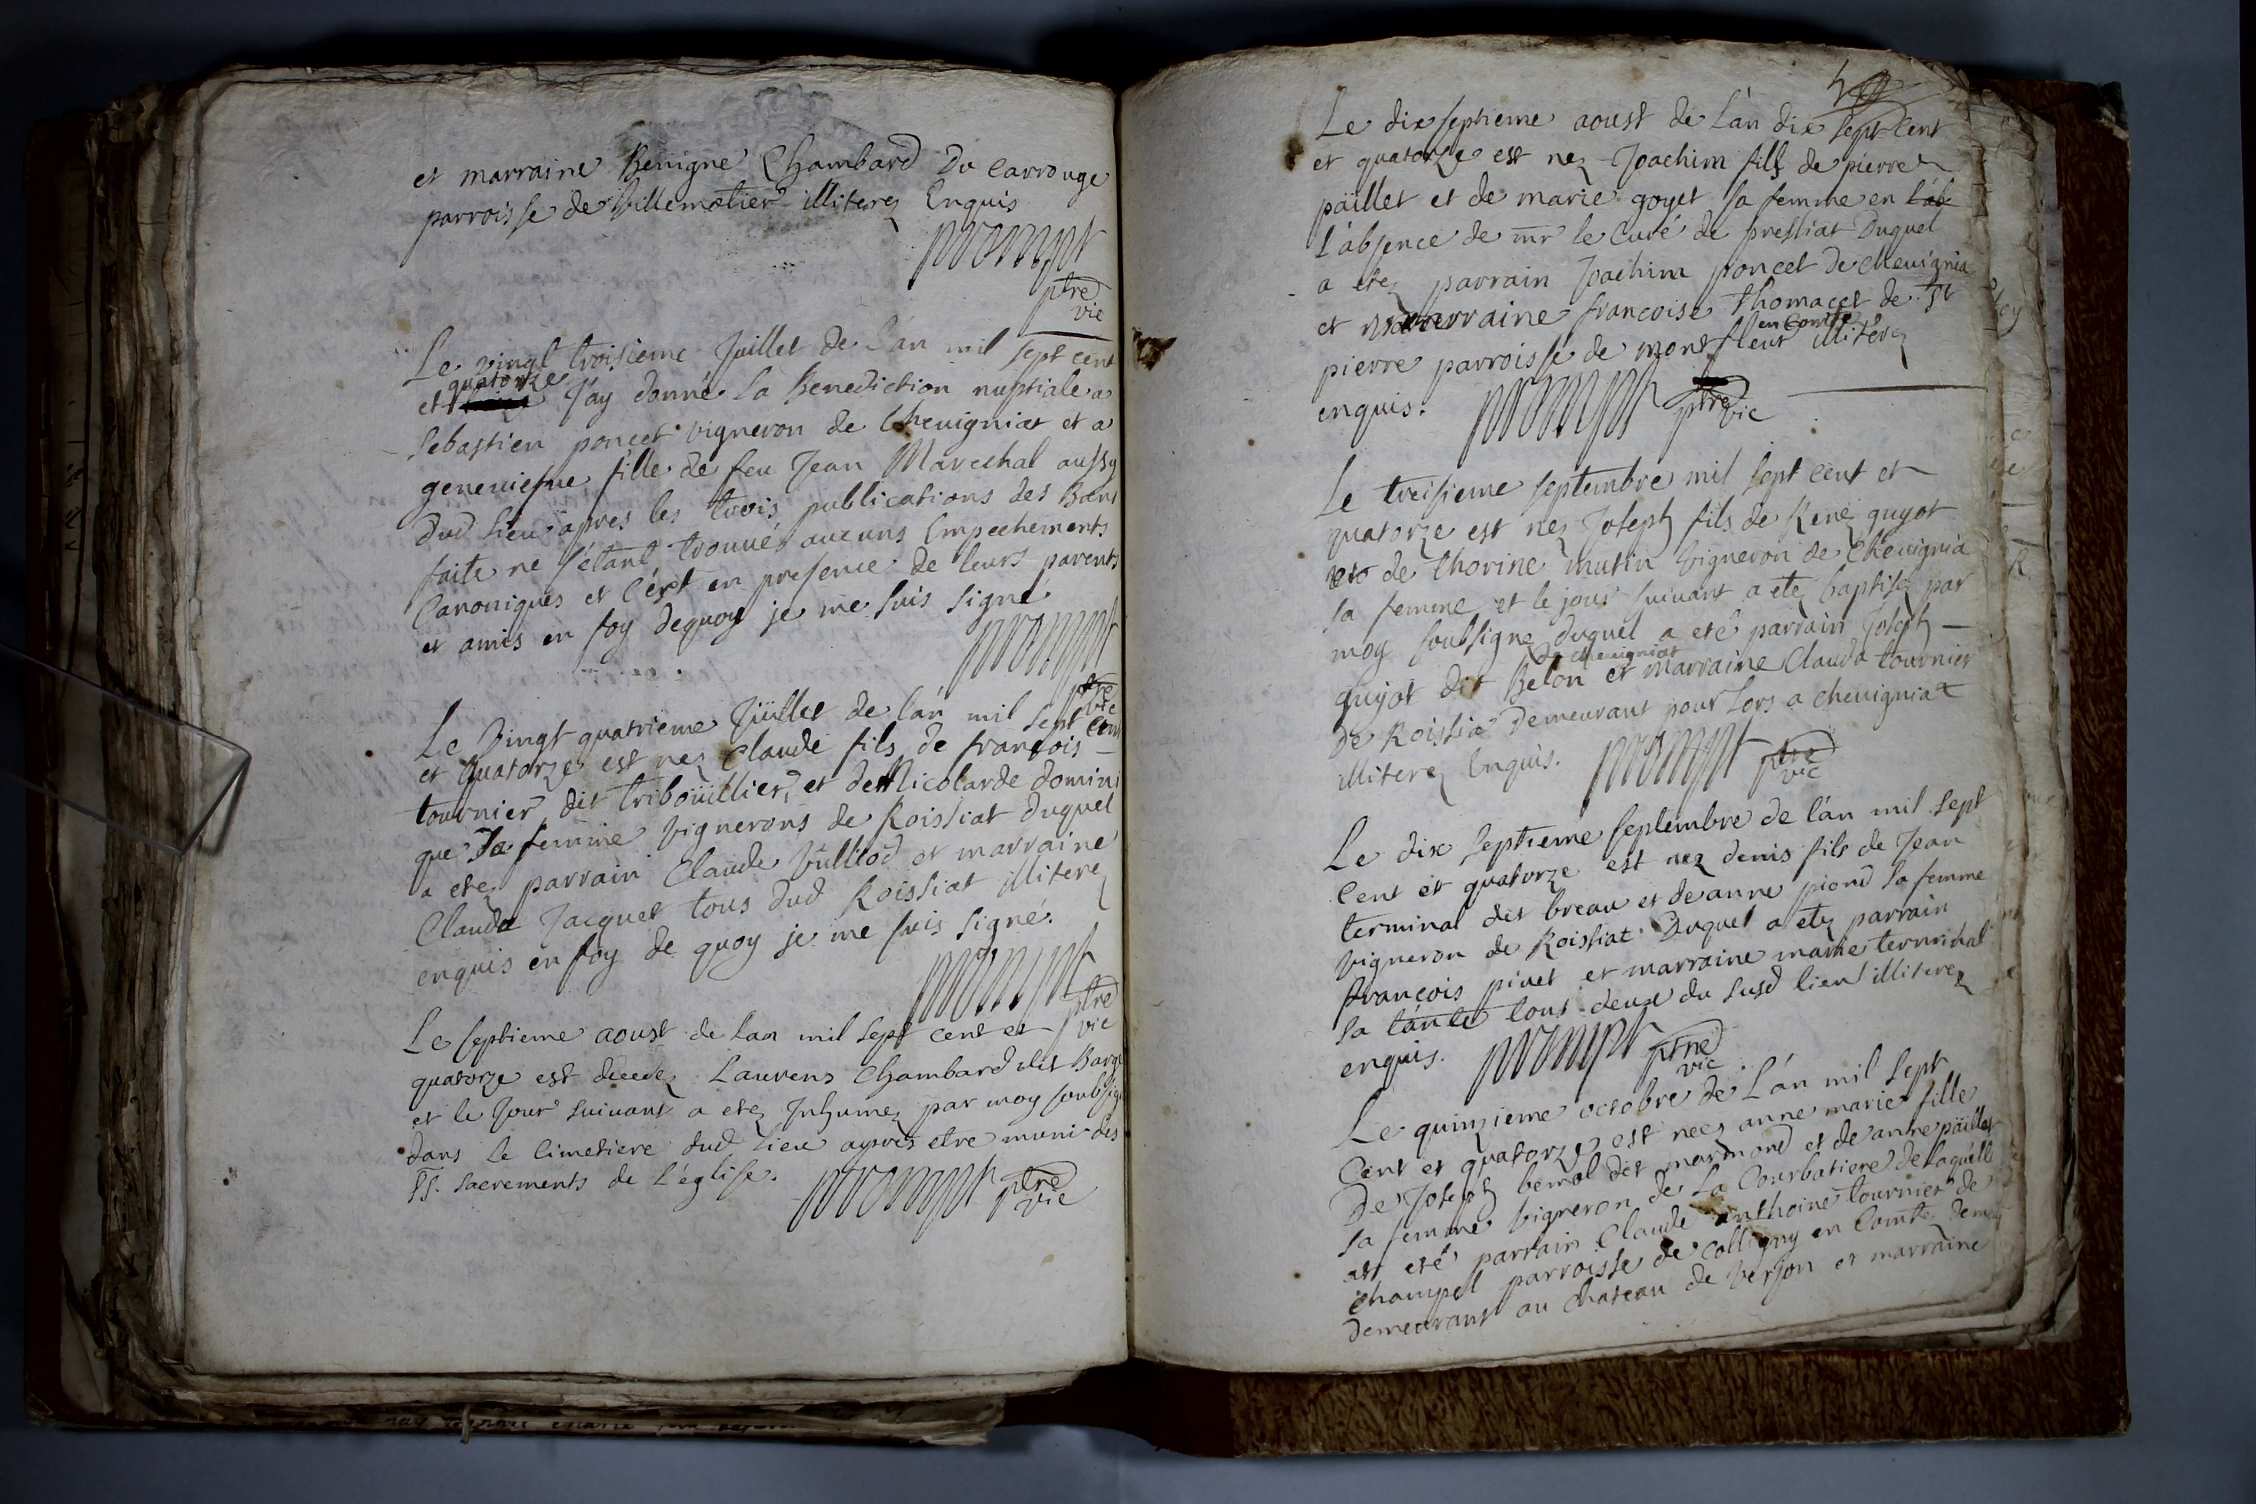 et marraine Benigne Chambard Du Carrouge
parroisse de Villemotier illiterez Enquis
prompt
ptre
vic
Le vingt troisieme Juillet de L'an mil sept cent
quatorze
et J'ay donné La Benediction nuptiale a
Sebastien poncet vigneron de Chevigniat et a
geneviefve fille de feu Jean Mareschal aussy
dud Lieu apres les trois publications des Bans
faite ne s'étant trouvés aucuns Empechements
Canoniques et c'ést en presence de leurs parents
et amis en foy dequoy je me suis signé
prompt
ptre
vic
Le Vingt quatrieme Juillet de l'an mil sept Cent
et Quatorze est nez Claude fils de françois
tournier dit triboüillier, et de Nicolarde domini
que Sa femme Vignerons de Roissiat duquel
a etez parrain Claude Vulliod et marraine
Clauda Jacquet tous dud Roissiat illiterez
enquis en foy de quoy je me suis signé.
prompt
ptre
vic
Le septieme aoust de Lan mil sept cent et
quatorze est decedez Laurens Chambard dit Barge
et le Jour suivant a etez Inhumez par moy soubsig
dans Le Cimetiere dud Lieu apres etre muni des
SS. sacrements de L'église.
prompt ptre
vic
Le dix septieme aoust de L'an dix sept Cent
et quatorze est nez Joachim fils de pierre
païllet et de marie goyet sa femme en L'ab
L'absence de mr le Curé de pressiat Duquel
a etez parrain Joachim poncet de chevignia
et marraine francoise thomacet de St
en Comté
pierre parroisse de montfleur illiterez
enquis. prompt ptre
vic
Le treisieme septembre mil sept cent et
quatorze est nez Joseph fils de René guyot
de thorine mutin Vigneron de Chevignia
sa femme et le jour suivant a etez baptisez par
moy soussigné duquel a eté parrain Joseph
de chevigniat
guyot dit Belon et marraine Clauda tournier
de Roissia Demeurant pour Lors a chevigniat
illiterez Enquis. prompt ptre
vic
Le dix Septieme septembre de l'an mil sept
Cent et quatorze est nez denis fils de Jean
terminal dit breau et de anne piond sa femme
vigneron de Roissiat Duquel a etez parrain
françois pivet et marraine marie terminal
sa tante tous deux du susd lieu illiterez
enquis. prompt ptre
vic
Le quinzieme octobre de L'an mil sept
Cent et quatorze est neez anne marie fille
De Joseph bernol dit marmond et de anne païllet
sa femme Vigneron de La Courbatiere de Laquelle
at eté parrain Claude Anthoine tournier de
Champel parroisse de Colligny en Comté deme
demeurant au Chateau de Verjon et marraine